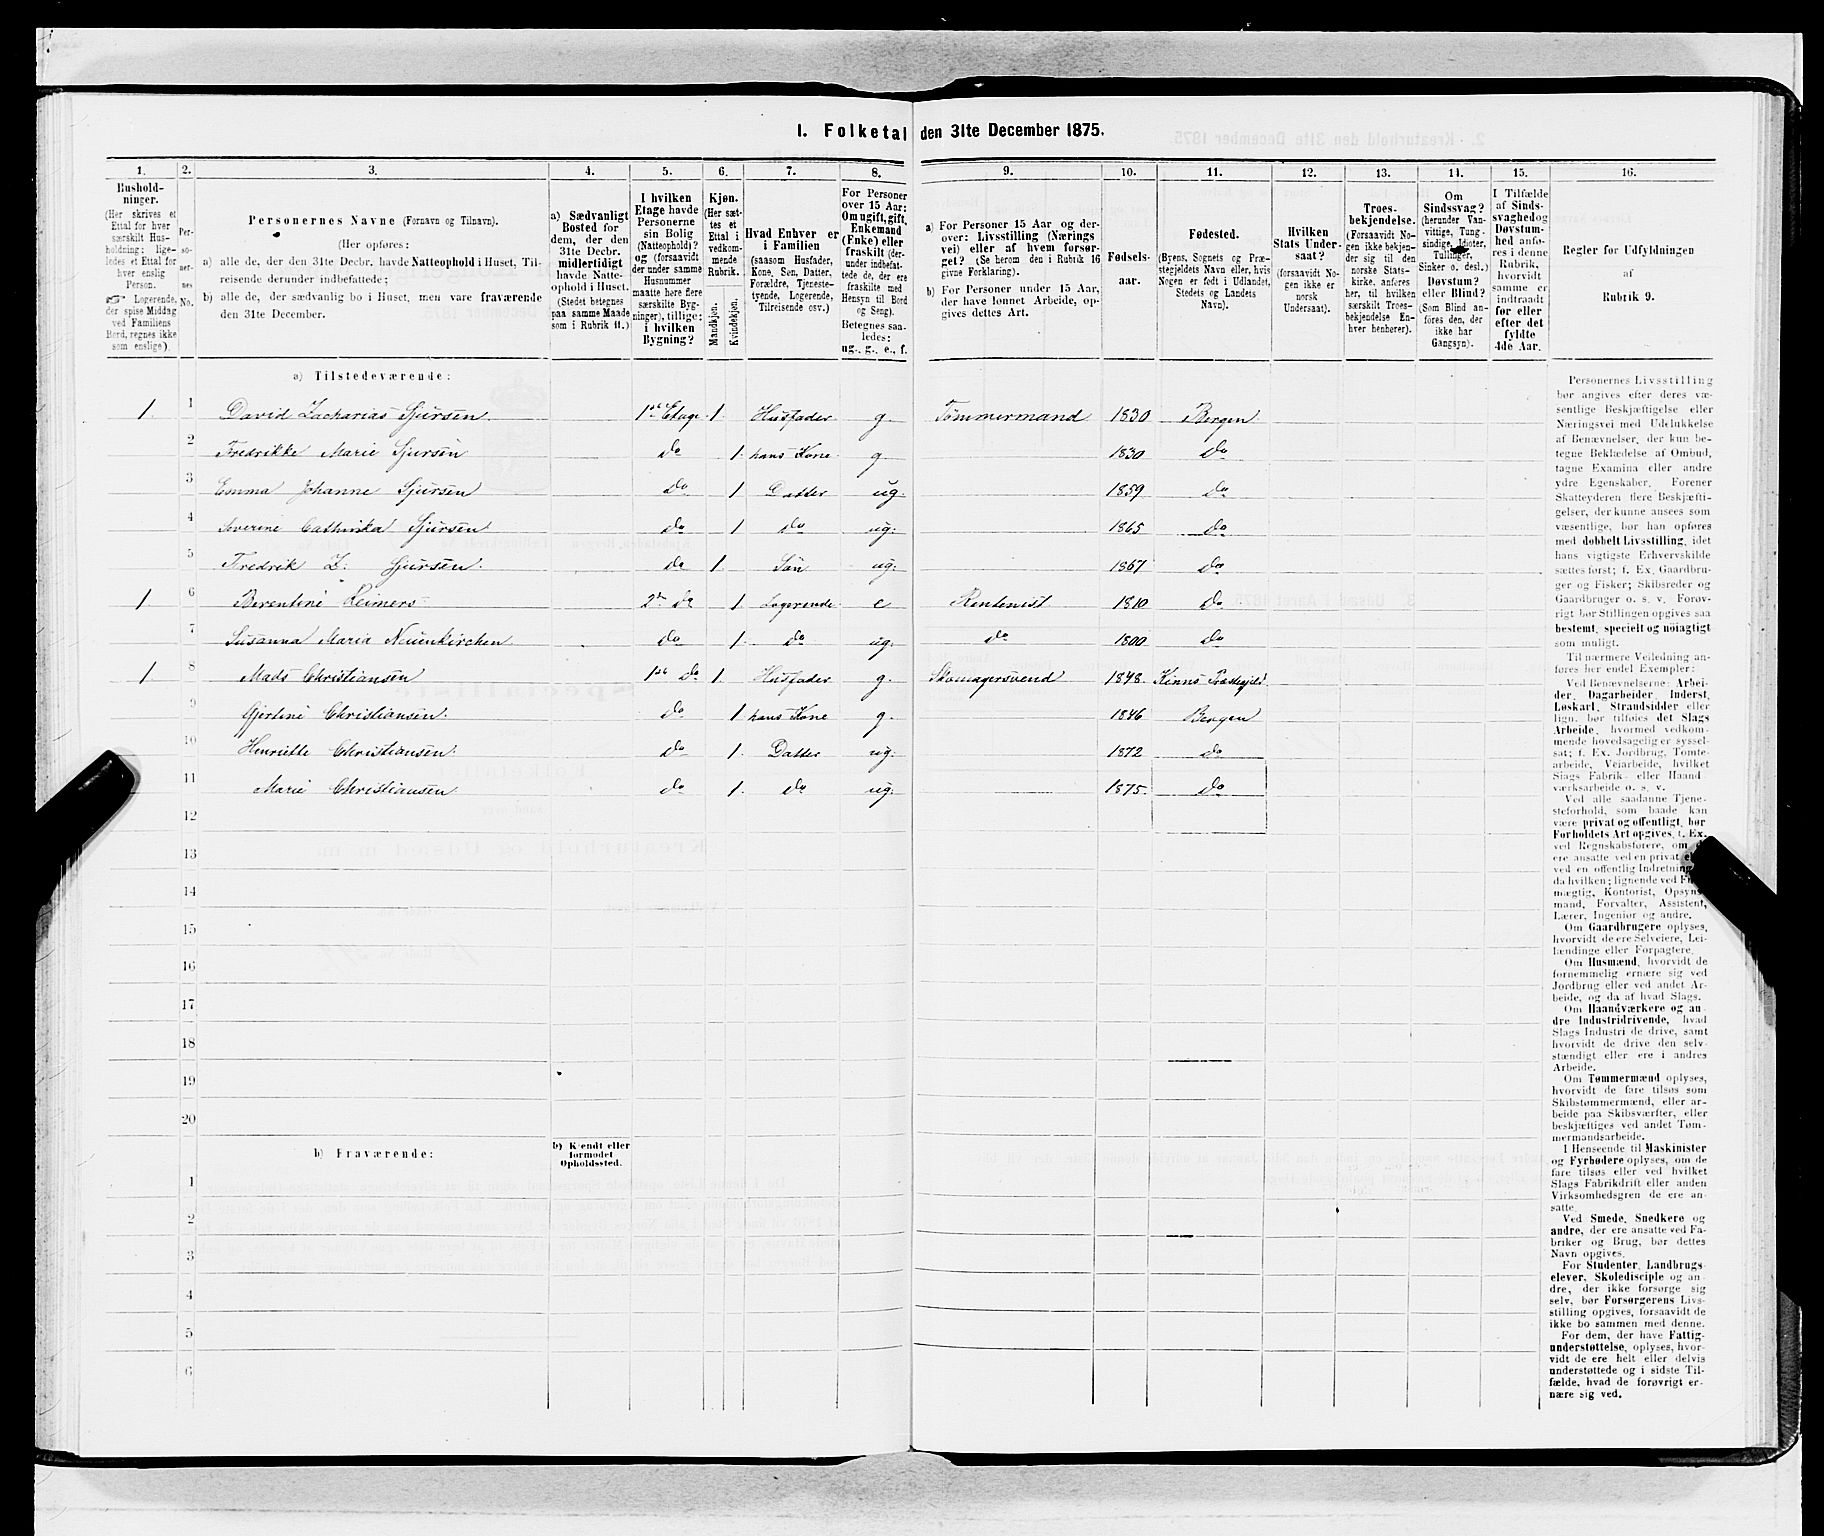 1. Folketal den 31te December 1875.
1.
Hushold-
ninger.
(Her skrives et
Ettal for hver
særskilt Hus-
holdning; lige-
ledes et Ettal for
hver enslig
Person.
☞ Logerende,
der spise Middag
ved Familiens
Bord, regnes ikke
som enslige).
2.
Per-
so-
ner-
nes
No.
3.
Personernes Navne (Fornavn og Tilnavn).
(Her opføres:
a) alle de, der den 31te Decbr. havde Natteophold i Huset, Til-
reisende derunder indbefattede;
b) alle de, der sædvanlig bo i Huset, men vare fraværende
den 31te December.
4.
a) Sædvanligt
Bosted for
dem, der den
31te Decbr.
midlertidigt
havde Natte-
ophold i Huset.
(Stedet betegnes
paa samme Maade
som i Rubrik 11.)
5.
I hvilken
Etage havde
Personerne
sin Bolig
(Natteophold)?
og (forsaavidt
der under samme
Husnummer
maatte høre flere
særskilte Byg-
ninger), tillige:
i hvilken
Bygning?
6.
Kjøn.
(Her sæt-
tes et
Ettal i
vedkom-
mende
Rubrik.
Mandkjøn.
Kvindekjøn.
7.
Hvad Enhver er
i Familien
(saasom Husfader,
Kone, Søn, Datter,
Forældre, Tjeneste-
tyende, Logerende,
Tilreisende osv.)
8.
For Personer
over 15 Aar:
Om ugift, gift,
Enkemand
(Enke) eller
fraskilt (der-
under indbefat-
tede de, der ere
fraskilte med
Hensyn til Bord
og Seng).
Betegnes saa-
ledes:
ug., g., e., f.
9.
a) For Personer 15 Aar og der-
over: Livsstilling (Nærings
vei) eller af hvem forsør-
get? (Se herom den i Rubrik 16
givne Forklaring).
b) For Personer under 15 Aar,
der have lønnet Arbeide, op-
gives dettes Art.
10.
Fødsels-
aar.
11.
Fødested.
(Byens, Sognets og Præ-
stegjeldets Navn eller, hvis
Nogen er født i Udlandet,
Stedets og Landets
Navn).
12.
Hvilken
Stats Under-
saat?
(forsaavidt No-
gen ikke er
norsk
Undersaat).
13.
Troes-
bekjendelse.
(Forsaavidt No-
gen ikke bekjen-
der sig til den
norske Stats-
kirke, anføres
her, til hvilken
særskilt Troes-
bekjendelse En-
hver henhører).
14.
Om
Sindssvag?
(herunder Van-
vittige, Tung-
sindige, Idioter,
Tullinger,
Sinker o. desl.)
Døvstum?
eller Blind?
(Som Blind an-
føres den, der
ikke har
Gangsyn).
15.
I Tilfælde
af Sinds-
svaghed og
Døvstum-
hed anfø-
res i denne
Rubrik,
hvorvidt
samme er
indtraadt
før eller
efter det
fyldte
4de Aar.
16.
Regler for Udfyldningen
af
Rubrik 9.
a) Tilstedeværende:
1. 1 David Zacharias Sjursen. 1ste Etage 1. Husfader g. Tømmermand 1830 Bergen
2 Fredrikke Marie Sjursen do 1. hans Kone. g. 1830 do
3 Emma Johanne Sjursen do 1 Datter ug. 1859 do
4 Severine Cathinka Sjursen do 1 do ug. 1865 do
5 Fredrik Z. Sjursen. do 1. Søn ug. 1867 do
1 6 Berentine Reimers 2den do 1. Logerende e Rentenist 1810 do
7 Susanna Maria Neuenkirchen do 1. do ug. do 1800 do
1 8 Mads Christiansen 1ste do 1. Husfader g. Skomagersvend 1848. Kinns Præstegjeld
9 Gjertine Christiansen. do 1 hans Kone g. 1846 Bergen
10 Henriette Christiansen. do 1. Datter ug. 1872 do
11 Marie Christiansen do 1. do ug. 1875. do
12
13
14
15
16
17
18
19
20
b) Fraværende:
b) Kjendt eller
formodet
Opholdssted.
1
2
3
4
5
6
Personernes Livsstilling
bør angives efter deres væ-
sentlige Beskjæftigelse eller
Næringsvei med Udelukkelse
af Benævnelser, der kun be-
tegne Beklædelse af Ombud,
tagne Examina eller andre
ydre Egenskaber. Forener
Skatteyderen flere Beskjæfti-
gelser, der kunne ansees som
væsentlige, bør han opføres
med dobbelt Livsstilling, idet
hans vigtigste Erhvervskilde
sættes først; f. Ex. Gaardbru-
ger og Fisker; Skibsreder og
Gaardbruger o. s. v. Forøv-
rigt bør Stillingen opgives saa
bestemt, specielt og nøiagtigt
som muligt.
Til nærmere Veiledning an-
føres her endel Exempler:
Ved Benævnelserne: Arbei-
der, Dagarbeider, Inderst,
Løskarl, Strandsidder eller
lign. bør tilføies det Slags
Arbeide, hvormed vedkom-
mende hovedsagelig er syssel-
sat; f. Ex. Jordbrug, Tomte-
arbeide, Veiarbeide, hvilket
Slags Fabrik- eller Haand
værksarbeide o. s. v.
Ved alle saadanne Tjene-
steforhold, som baade kan
være privat og offentligt, bør
Forholdets Art opgives, f. Ex.
ved Regnskabsførere, om
ere ansatte ved en privat
ved en offentlig Indretning
da hvilken; lignende ved
mægtig, Kontorist, Opsyns-
mand, Forvalter, Assistent,
Lærer, Ingeniør og andre.
Om Gaardbrugere oplyses,
hvorvidt de ere Selveiere, Lei-
lændinge eller Forpagtere.
Om Husmænd, hvorvidt de
fornemmelig ernære sig ved
Jordbrug eller ved andet Ar-
beide, og da af hvad Slags.
Om Haandværkere og an-
dre Industridrivende, hvad
Slags Industri de drive, samt
hvorvidt de drive den selv-
stændigt eller ere i andres
Arbeide.
Om Tømmermænd oplyses,
hvorvidt de fare tilsøs som
Skibstømmermænd, eller ar-
beide paa Skibsværfter, eller
beskjæftiges ved andet Tøm-
mermandsarbeide.
I Henseende til Maskinister
og Fyrbødere oplyses, om de
fare tilsøs eller ved hvilket
Slags Fabrikdrift eller anden
Virksomhedsgren de ere an-
satte.
Ved Smede, Snedkere og
andre, der ere ansatte ved Fa-
briker og Brug, bør dettes
Navn opgives.
For Studenter, Landbrugs-
elever, Skoledisciple og an-
dre, der ikke forsørge sig
selv, bør Forsørgerens Livs-
stilling opgives, forsaavidt de
ikke bo sammen med denne.
For dem, der have Fattig-
understøttelse, oplyses, hvor-
vidt de ere helt eller delvis
understøttede og i sidste Til-
fælde, hvad de forøvrigt er-
nære sig ved.